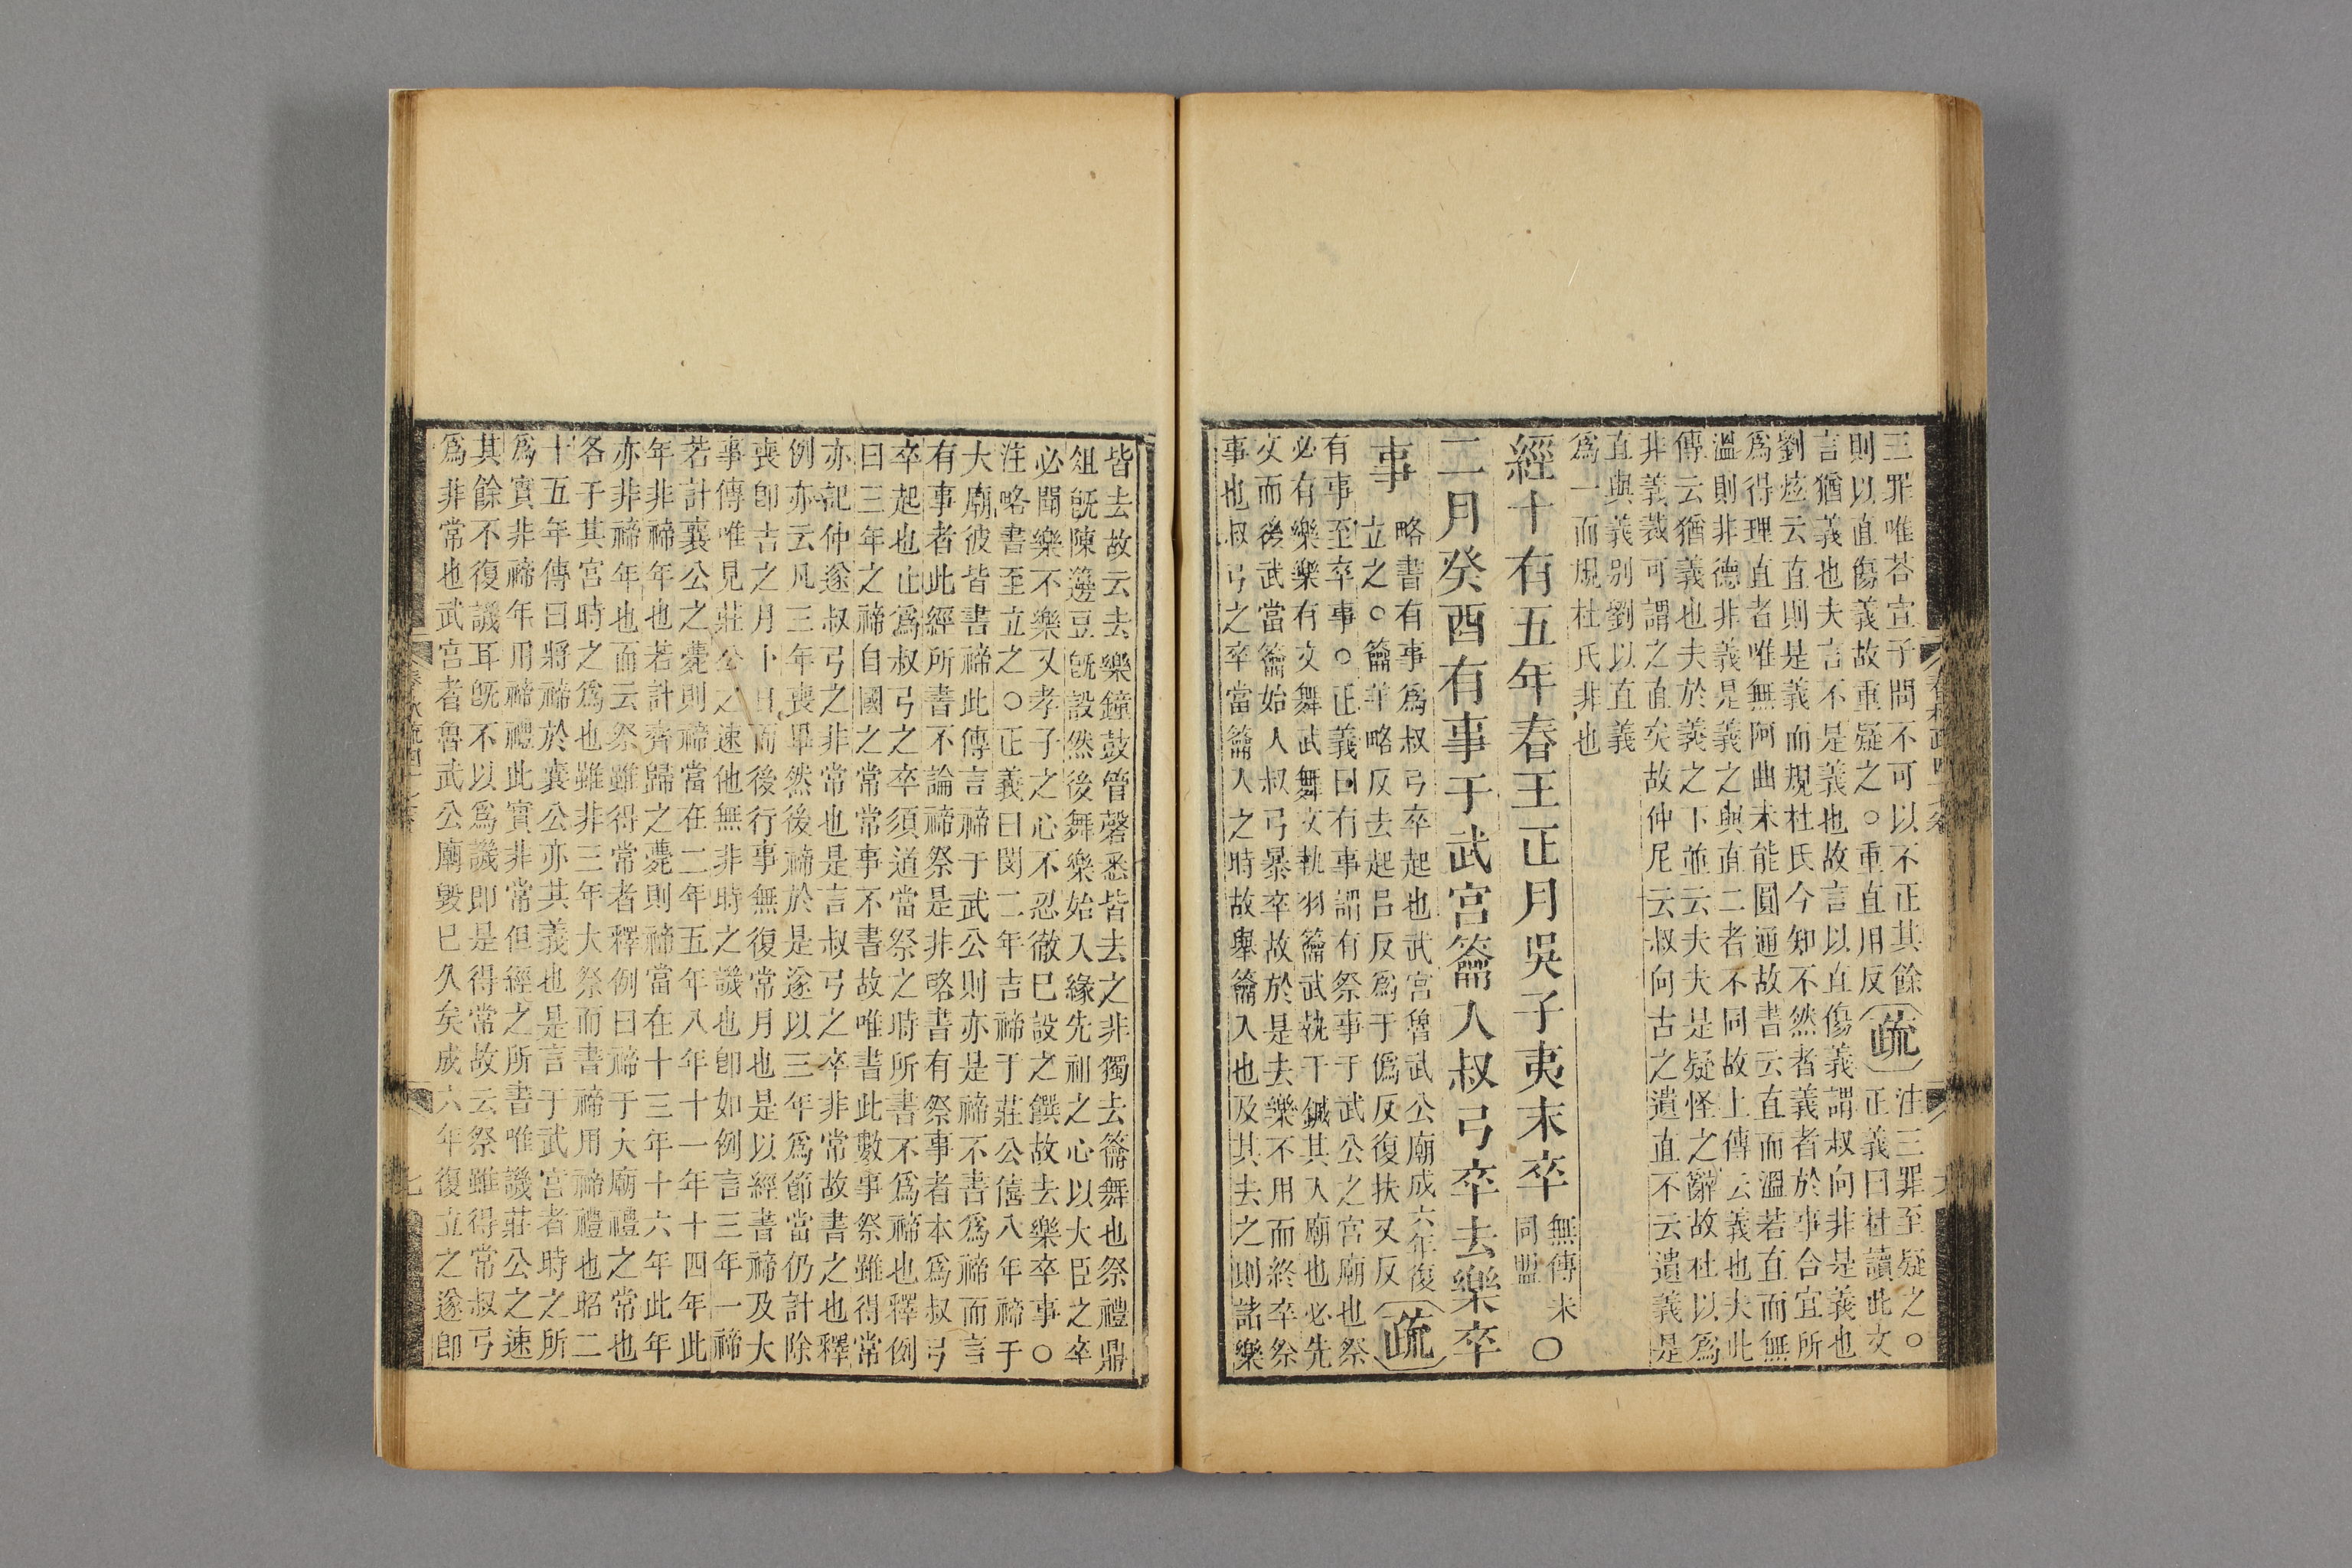 三罪唯荅宣子問不可以不正其餘
則以直傷義故重疑之○重直用反
疏
注三罪至疑之○
正義曰杜讀此文
言猶義也夫言不是義也故言以直傷義謂叔向非是義也
劉炫云直則是義而規杜氏今知不然者義者於事合宜所
爲得理直者唯無阿曲未能圓通故書云直而溫若直而無
溫則非德非義是義之與直二者不同故上傳云義也夫此
傳云猶義也夫於義之下並云夫夫是疑怪之辭故杜以爲
非義裁可謂之直矣故仲尼云叔向古之遺直不云遺義是
直與義別劉以直義
爲一而規杜氏非也
經十有五年春王正月吳子夷末卒
無傳未
同盟
○
二月癸酉有事于武宮籥入叔弓卒去樂卒
事
略書有事爲叔弓卒起也武宮魯武公廟成六年復
立之○籥羊略反去起呂反爲于僞反復扶又反
疏
有事至卒事○正義曰有事謂有祭事于武公之宮廟也祭
必有樂樂有文舞武舞文執羽籥武執干鏚其入廟也必先
文而後武當籥始入叔弓暴卒故於是去樂不用而終卒祭
事也叔弓之卒當籥入之時故舉籥入也及其去之則諸樂
皆去故云去樂鐘鼓管磬悉皆去之非獨去籥舞也祭禮鼎
俎既陳籩豆既設然後舞樂始入緣先祖之心以大臣之卒
必聞樂不樂又孝子之心不忍徹已設之饌故去樂卒事○
注略書至立之○正義曰閔二年吉禘于莊公僖八年禘于
大廟彼皆書禘此傳言禘于武公則亦是禘不書爲禘而言
有事者此經所書不論禘祭是非略書有祭事者本爲叔弓
卒起也止爲叔弓之卒須道當祭之時所書不爲禘也釋例
曰三年之禘自國之常常事不書故唯書此數事祭雖得常
亦記仲遂叔弓之非常也是言叔弓之卒非常故書之也釋
例亦云凡三年喪畢然後禘於是遂以三年爲節當仍計除
喪卽吉之月卜日而後行事無復常月也是以經書禘及大
事傳唯見莊公之速他無非時之譏也卽如例言三年一禘
若計襄公之薨則禘當在二年五年八年十一年十四年此
年非禘年也若計齊歸之薨則禘當在十三年十六年此年
亦非禘年也而云祭雖得常者釋例曰禘于大廟禮之常也
各于其宮時之爲也雖非三年大祭而書禘用禘禮也昭二
十五年傳曰將禘於襄公亦其義也是言于武宮者時之所
爲實非禘年用禘禮此實非常但經之所書唯譏莊公之速
其餘不復譏耳既不以爲譏卽是得常故云祭雖得常叔弓
爲非常也武宮者魯武公廟毀已久矣成六年復立之遂卽